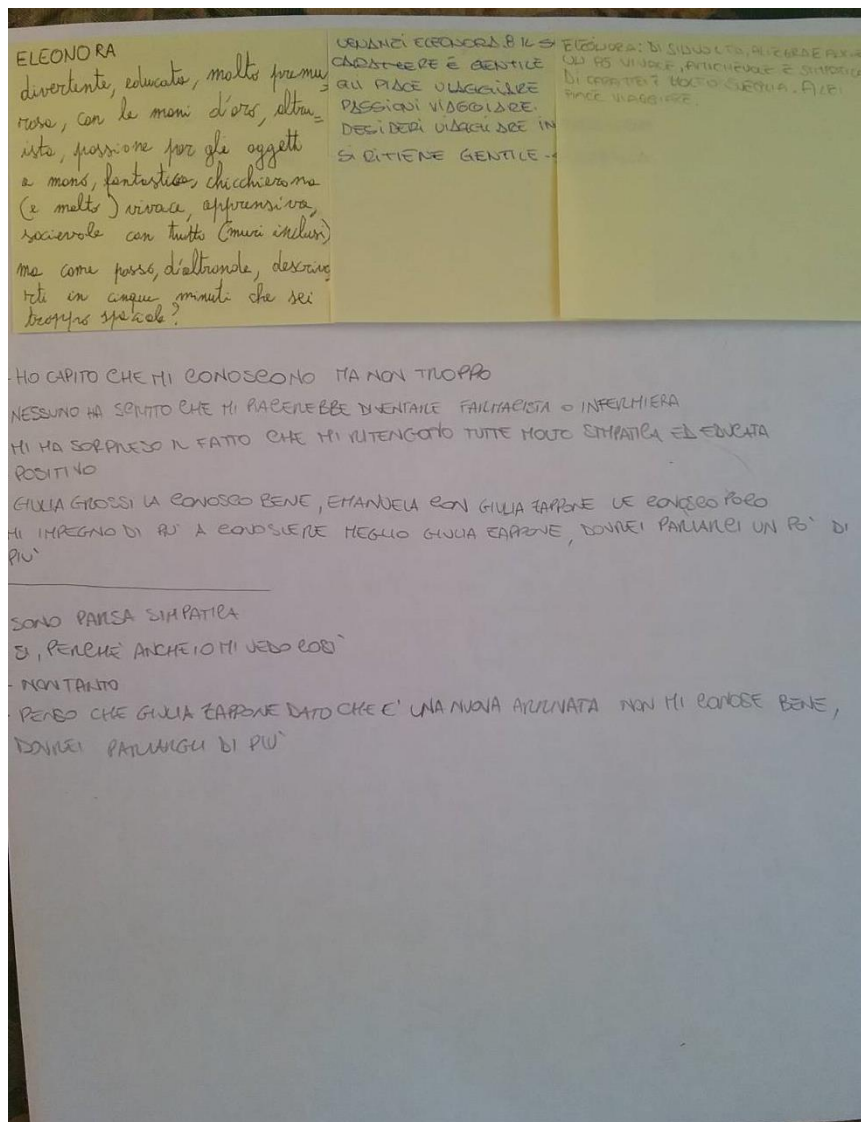 ELEONORA
divertente, educata, molto premu=
rosa, con le mani d'oro, altru=
ista, passione per gli oggetti
a mano, fantastica, chicchierona
(e molto) vivace, apprensiva,
socievole con tutto (muri inclusi)
ma come posso, d'altronde, descrive
rti in cinque minuti che sei
troppo speciale?
VENANZI ELEONORA. B IL SI
CARATTERE È GENTILE
GLI PIACE VIAGGIARE
PASSIONI VIAGGIARE.
DESIDERI VIAGGIARE IN
SI RITIENE GENTILE
ELEONORA: DI SIANOLTO, ALLEGRA E
UN PO VIVACE, AMICHEVOLE E SIMPATICA
DI CARATTERE MOLTO SVEGLIA. A LEI
PIACE VIAGGIARE.
- HO CAPITO CHE MI CONOSCONO MA NON TROPPO
NESSUNO HA SCRITTO CHE MI PIACEREBBE DIVENTARE FARMACISTA O INFERMIERA
MI HA SORPRESO IL FATTO CHE MI RITENGONO TUTTE MOLTO SIMPATICA ED EDUCATA
POSITIVO
GIULIA GROSSI LA CONOSCO BENE, EMANUELA CON GIULIA ZAPPONE LE CONOSCO POCO
MI IMPEGNO DI PIU' A CONOSCERE MEGLIO GIULIA ZAPPONE, DOVREI PARLARCI UN PO' DI
PIU'
SONO PARSA SIMPATICA
SI, PERCHE' ANCHE IO MI VEDO COSI'
- NON TANTO
- PENSO CHE GIULIA ZAPPONE DATO CHE E' UNA NUOVA ARRIVATA NON MI CONOSE BENE,
DOVREI PARLARGLI DI PIU'